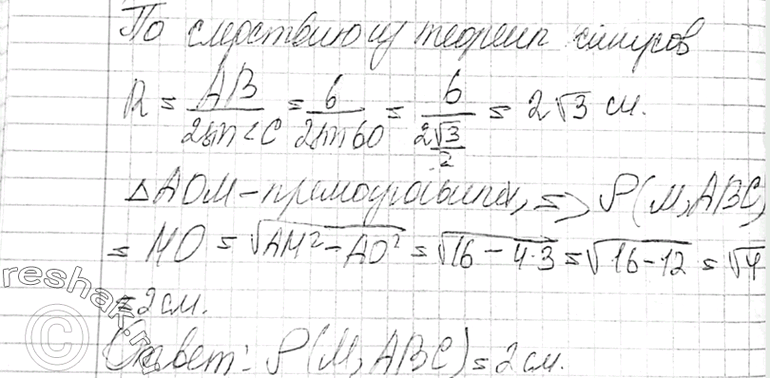 По следствию из теорем синусов
R = AB / 2sin<C = 6 / 2sin60 = 6 / 2√3/2 = 2√3 см.
△AOM - прямоугольный, => ρ(M, ABC)
= MO = √AM² - AO² = √16 - 4·3 = √16 - 12 = √4
= 2 см.
Ответ: ρ(M, ABC) = 2 см.
reshak.ru
©